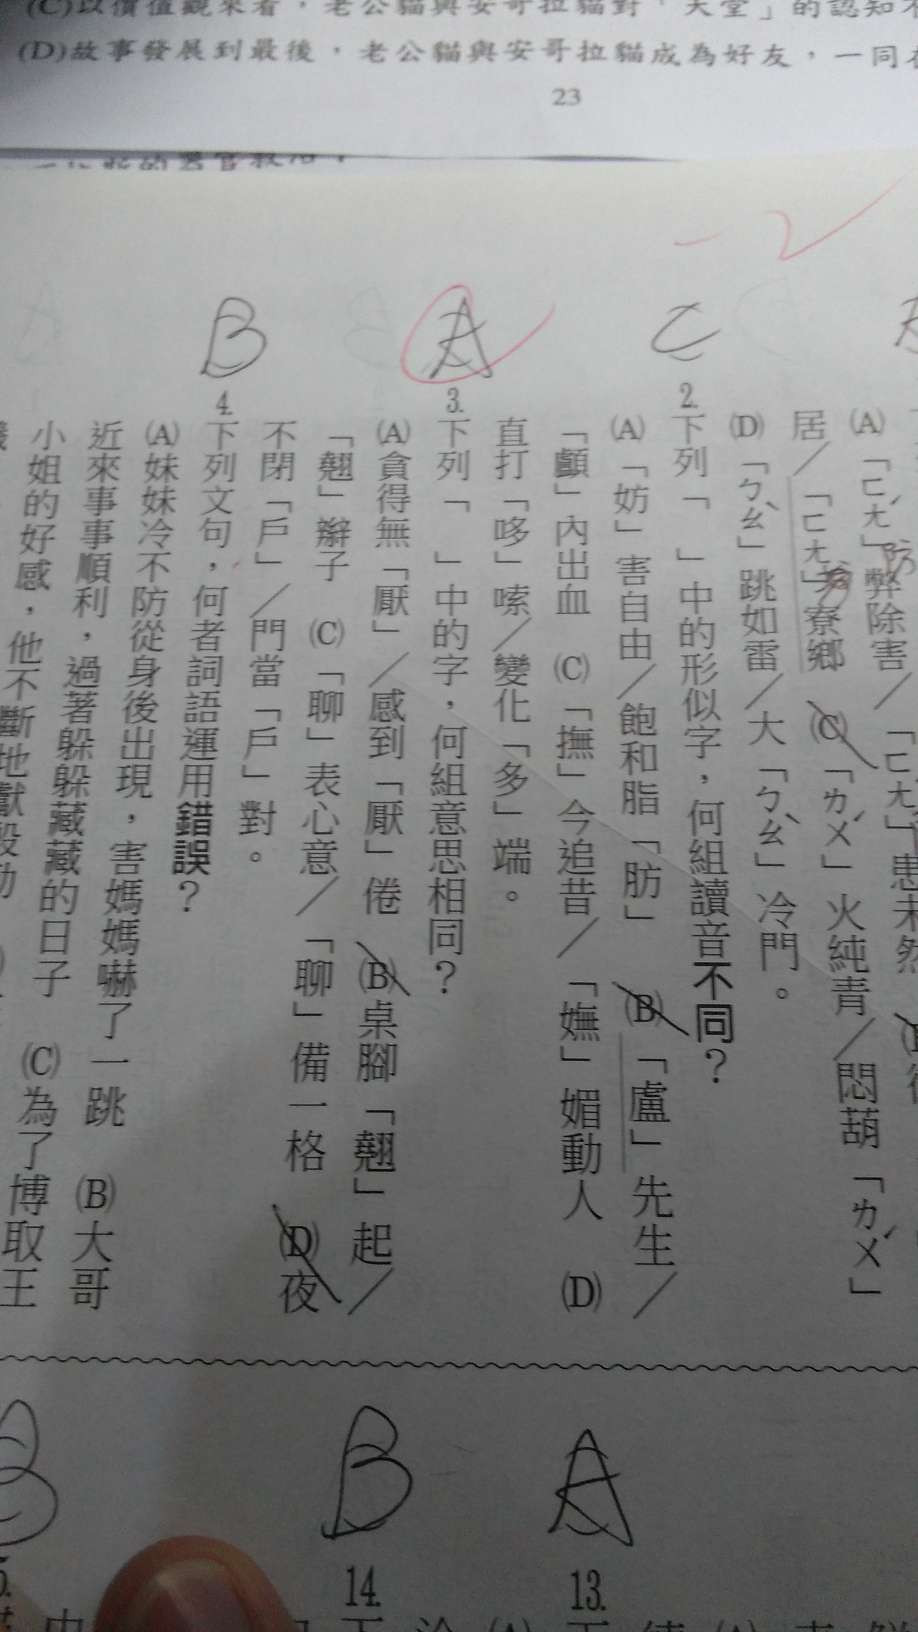 (C)以價值觀來看，老公貓與安哥拉貓對「天堂」的認知
(D)故事發展到最後，老公貓與安哥拉貓成為好友，一同
23
(A)「ㄈㄤˊ」弊除害／「ㄈㄤˊ」患未然
防
居／「ㄈㄤ」寮鄉 (C)「ㄌㄨˊ」火純青／悶葫「ㄌㄨˊ」
(D)「ㄅㄠˋ」跳如雷／大「ㄅㄠˋ」冷門。
C
2.下列「　」中的形似字，何組讀音不同？
(A)「妨」害自由／飽和脂「肪」 (B)「盧」先生／
「顱」內出血 (C)「撫」今追昔／「嫵」媚動人 (D)
直打「哆」嗦／變化「多」端。
A
3.下列「　」中的字，何組意思相同？
(A)貪得無「厭」／感到「厭」倦 (B)桌腳「翹」起／
「翹」辮子 (C)「聊」表心意／「聊」備一格 (D)夜
不閉「戶」／門當「戶」對。
B
4.下列文句，何者詞語運用錯誤？
(A)妹妹冷不防從身後出現，害媽媽嚇了一跳 (B)大哥
近來事事順利，過著躲躲藏藏的日子 (C)為了博取王
小姐的好感，他不斷地獻殷勤
A
13.
B
14.
B